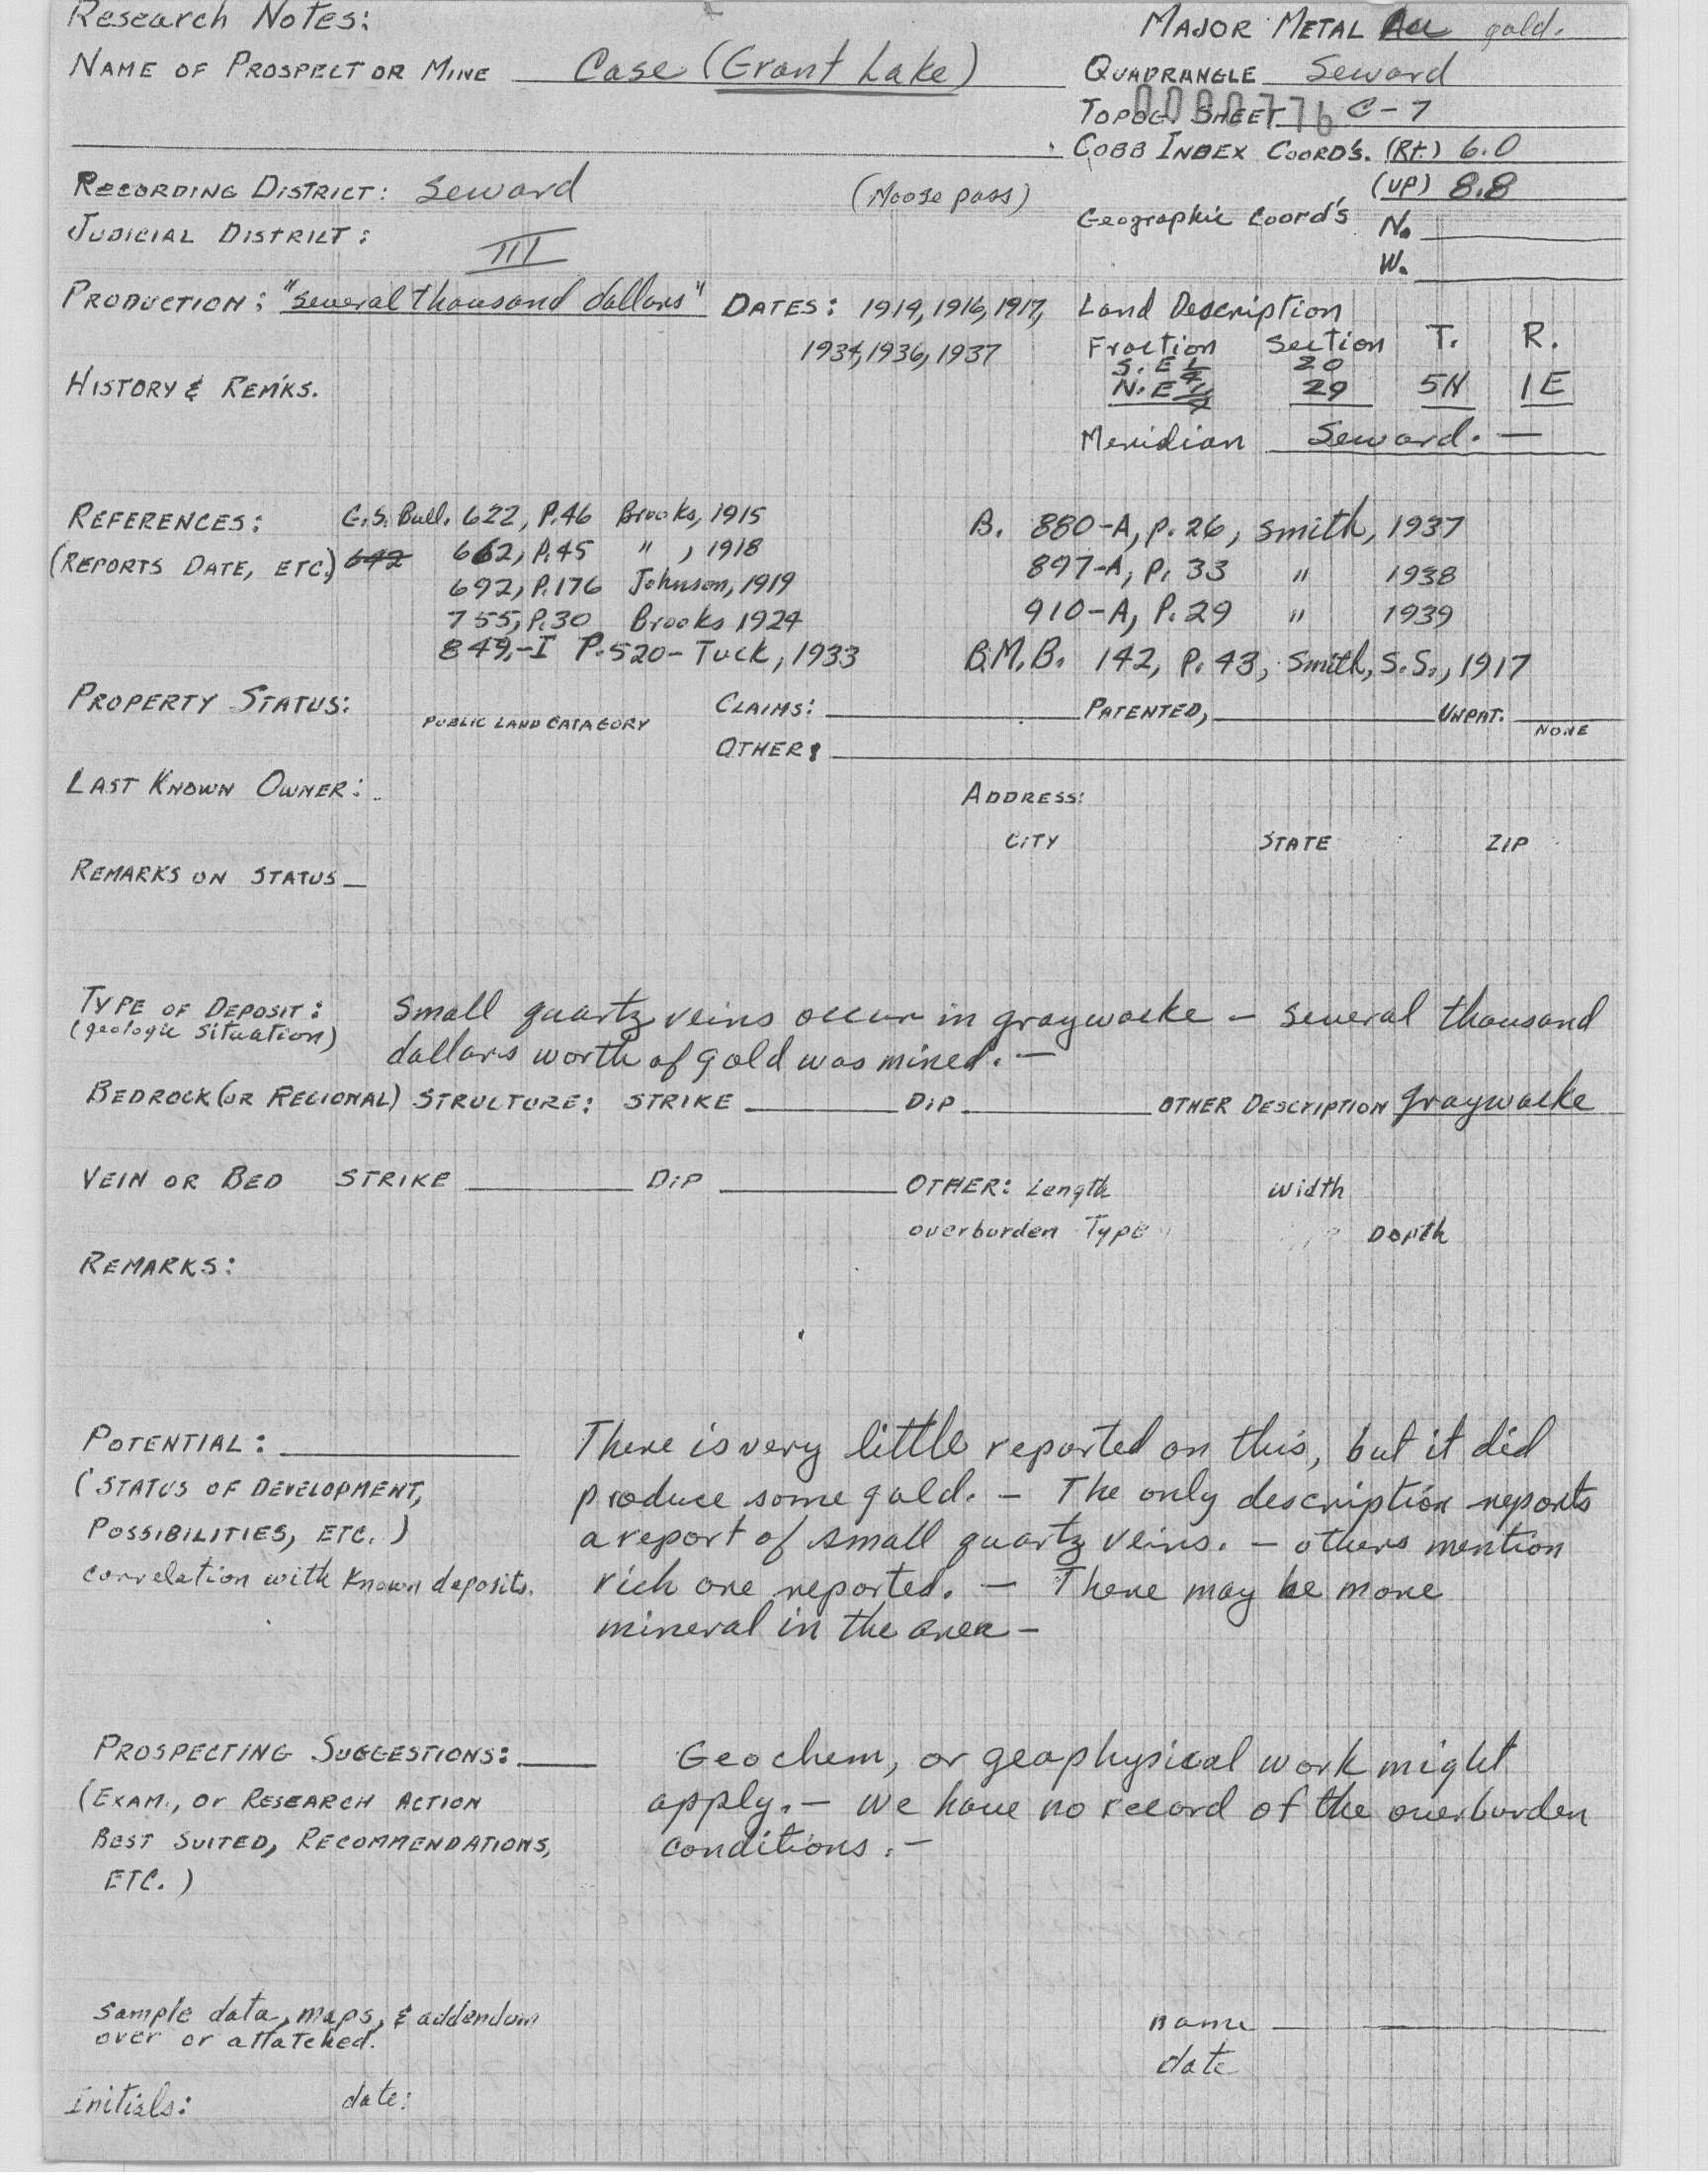 Research Notes:
MAJOR METAL Au gold.
NAME OF PROSPECT OR MINE Case (Grant Lake)
QUADRANGLE Seward
TOPOG. SHEET C-7
0000776
COBB INDEX COORD'S. (Rt.) 6.0
(UP) 8.8
RECORDING DISTRICT: Seward (Moose pass)
Geographic Coord's N.
W.
JUDICIAL DISTRICT: III
PRODUCTION: "several thousand dollars" DATES: 1914, 1916, 1917,
1934, 1936, 1937
Land Description
Fraction Section T. R.
S.E 1/4 20
N.E 1/4 29 5N 1E
Meridian Seward. —
HISTORY & REM'KS.
REFERENCES: G.S. Bull. 622, P.46 Brooks, 1915
(REPORTS DATE, ETC.) 642 662, P.45 " , 1918
692, P.176 Johnson, 1919
755, P.30 Brooks 1924
849,-I P.520- Tuck, 1933
B. 880-A, p. 26, Smith, 1937
897-A, P. 33 " 1938
910-A, P. 29 " 1939
B.M.B. 142, P. 43, Smith, S.S., 1917
PROPERTY STATUS: PUBLIC LAND CATAGORY CLAIMS: PATENTED, UNPAT. NONE
OTHER:
LAST KNOWN OWNER: ADDRESS:
CITY STATE ZIP
REMARKS ON STATUS —
TYPE OF DEPOSIT: Small quartz veins occur in graywacke — several thousand
(geologic situation) dollars worth of gold was mined. —
BEDROCK (OR REGIONAL) STRUCTURE: STRIKE DIP OTHER DESCRIPTION graywacke
VEIN OR BED STRIKE DIP OTHER: Length width
overburden Type Depth
REMARKS:
POTENTIAL: There is very little reported on this, but it did
(STATUS OF DEVELOPMENT, produce some gold. — The only description reports
POSSIBILITIES, ETC.) a report of small quartz veins. — others mention
correlation with known deposits. rich ore reported. — There may be more
mineral in the area —
PROSPECTING SUGGESTIONS: Geochem, or geophysical work might
(EXAM., or RESEARCH ACTION apply. — we have no record of the overburden
BEST SUITED, RECOMMENDATIONS, conditions. —
ETC.)
sample data, maps, & addendum
over or attatched.
name
date
Initials: date: